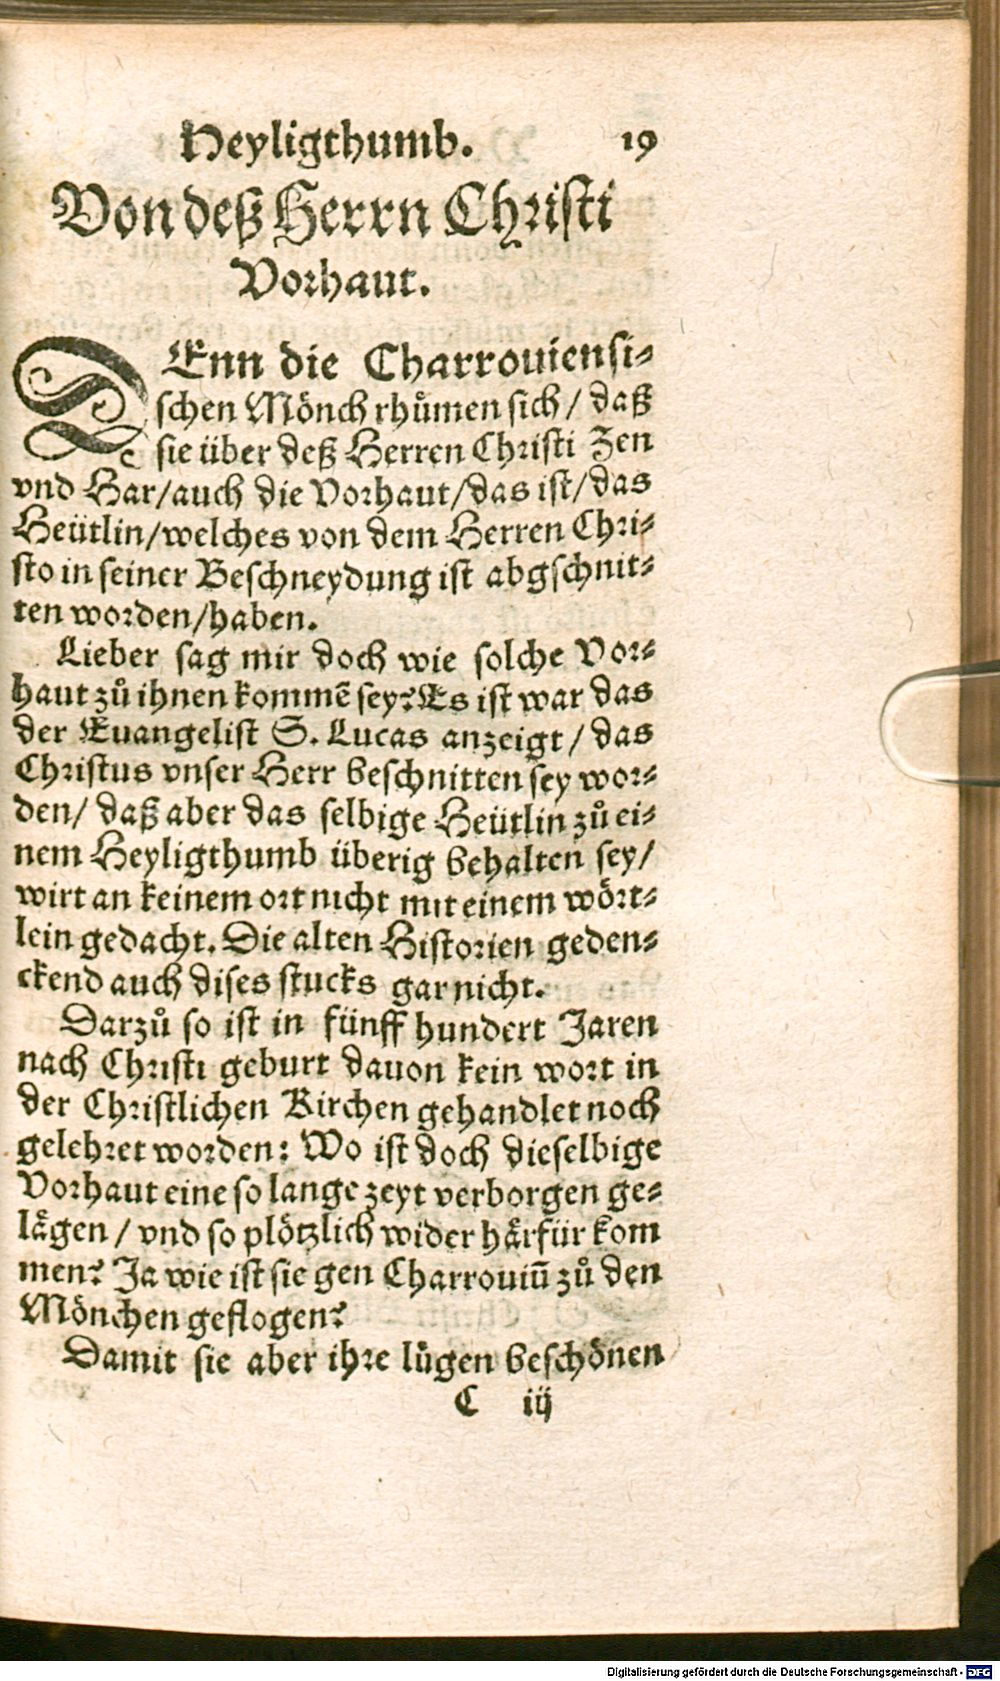 Heyligthumb. 19
Von deß Herrn Christi
Vorhaut.
DEnn die Charrouiensi-
schen Mönch rhůmen sich / daß
sie über deß Herren Christi Zen
vnd Har / auch die Vorhaut / das ist / das
Heütlin / welches von dem Herren Chri-
sto in seiner Beschneydung ist abgschnit-
ten worden / haben.
Lieber sag mir doch wie solche Vor-
haut zů ihnen kommē sey? Es ist war das
der Euangelist S. Lucas anzeigt / das
Christus vnser Herr beschnitten sey wor-
den / daß aber das selbige Heütlin zů ei-
nem Heyligthumb überig behalten sey /
wirt an keinem ort nicht mit einem wört-
lein gedacht. Die alten Historien geden-
ckend auch dises stucks gar nicht.
Darzů so ist in fünff hundert Jaren
nach Christi geburt dauon kein wort in
der Christlichen Kirchen gehandlet noch
gelehret worden: Wo ist doch dieselbige
Vorhaut eine so lange zeyt verborgen ge-
lägen / vnd so plötzlich wider härfür kom
men? Ja wie ist sie gen Charrouiū zů den
Mönchen geflogen?
Damit sie aber ihre lügen beschönen
C iij
Digitalisierung gefördert durch die Deutsche Forschungsgemeinschaft - DFG